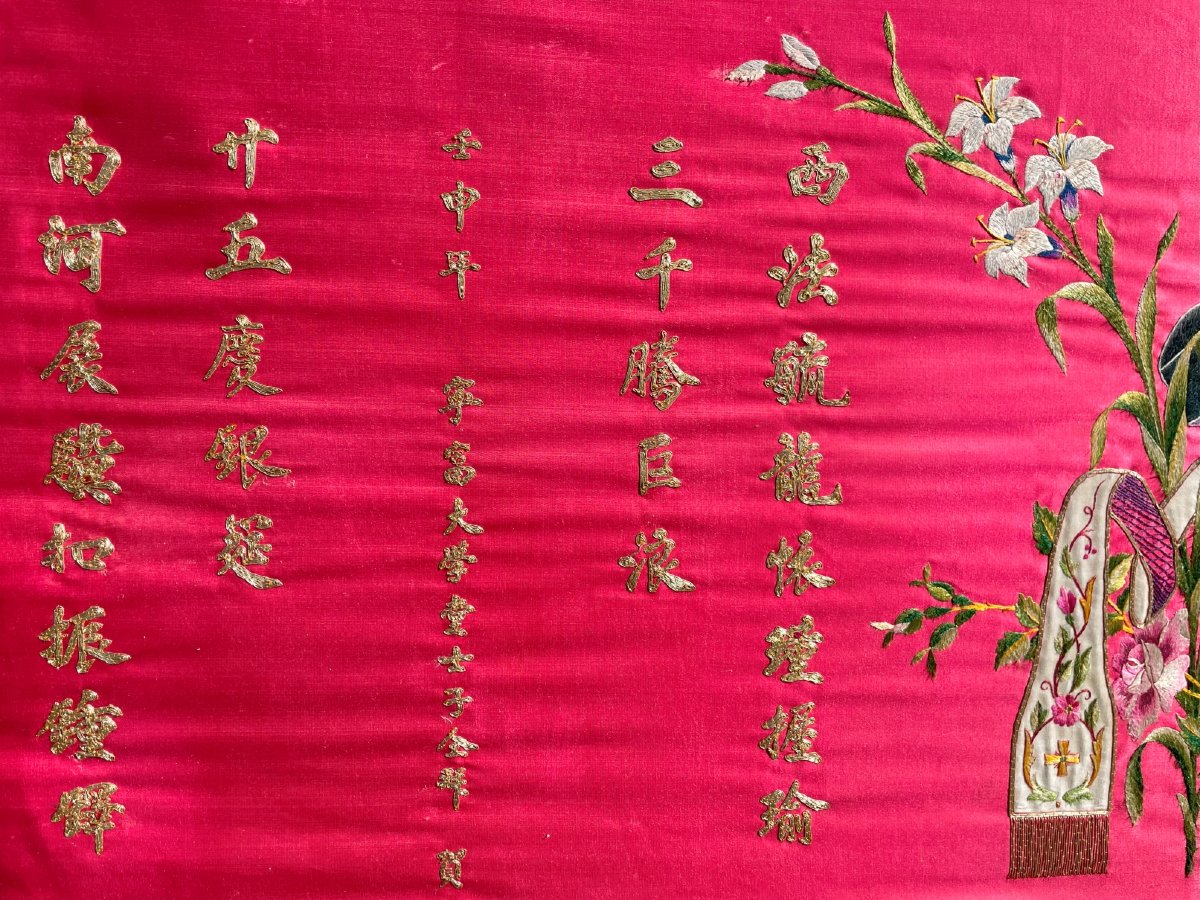 西法航龍懷瑾握瑜
三千騰巨浪
壬申年 寧富大學堂士子仝拜 賀
廿五慶銀筵
南河展驥扣振鐘鐸